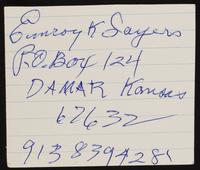 Emroy K Sayers
P.O. Box 124
DAMAR Kansas
67632
913 839 4281